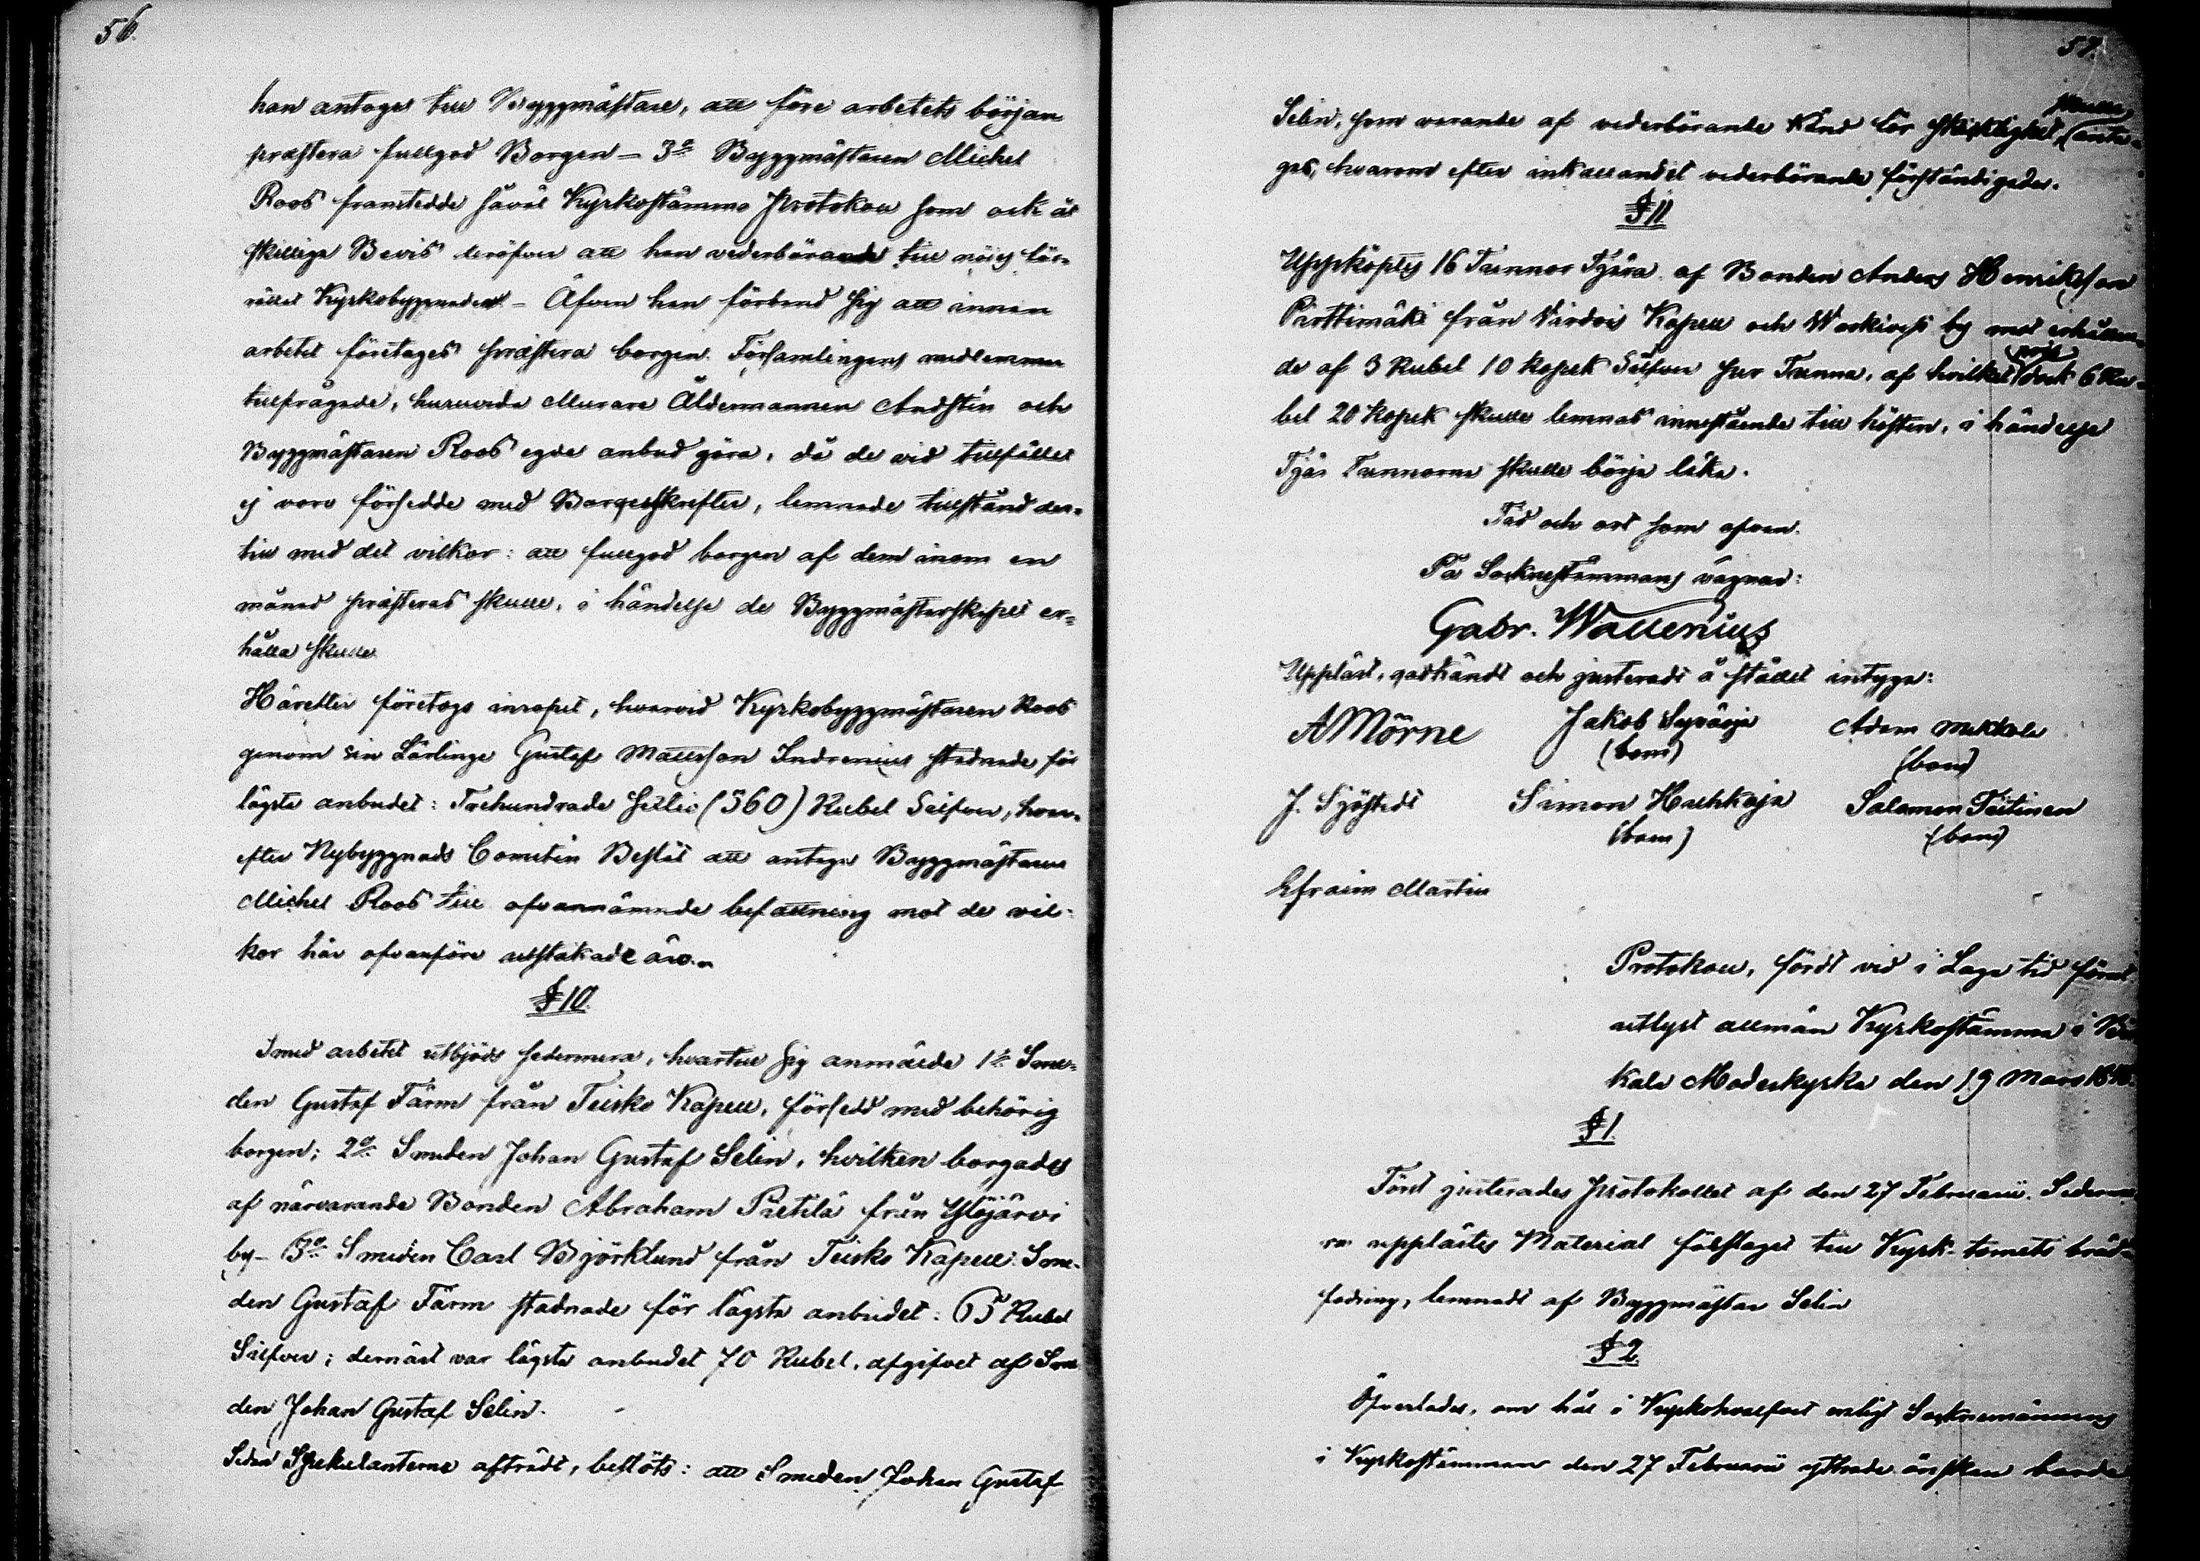 56.
han antages till Byggmästare, att före arbetets början
præstera fullgod Borgen – 3:o Byggmästaren Michel
Roos framtedde såväl Kyrkostämmo Protokoll som ock åt
skillige Bevis deröfver att han vederbörande till nöijes för-
rättat Kyrkobyggnader. – Äfven han förband sig att innan
arbetet företages præstera borgen. Församlingens medlemmar
tillfrågade, huruvida Murare Åldermannen Andstén och
Byggmästaren Roos egde anbud göra, då de vid tillfället
ej voro försedde med Borgesskrifter, lemnade tillstånd der-
till med det vilkor: att fullgod borgen af dem inom en
månad præsteras skulle, i händelse de Byggmästerskapet er-
hålla skulle
Härefter företogs inropet, hvarvid Kyrkobyggmästaren Roos
genom sin Lärlinge Gustaf Mattsson Indrenius stadnade för
lägsta anbudet: Trehundrade Sextio (360) Rubel Silfver, hvar-
efter Nybyggnads Comitén Beslöt att antaga Byggmästaren
Michel Roos till ofvannämnde befattning mot de vil-
kor här ofvanföre utstakade äro.
§ 10.
Smed arbetet utbjöds sedermera, hvartill sig anmälde 1:o Sme-
den Gustaf Färm från Teisko Kapell, försedd med behörig
borgen; 2:o Smeden Johan Gustaf Selin, hvilken borgades
af närvarande Bonden Abraham Pietilä från Ylöjärvi
by – 3:o Smeden Carl Björklund från Teisko Kapell. Sme-
den Gustaf Färm stadnade för lägsta anbudet: 65 Rubel
Silfver; dernäst var lägsta anbudet 70 Rubel, afgifvet af Sme
den Johan Gustaf Selin.
Sedan Spekulanterne afträdt, beslöts: att Smeden Johan Gustaf
57.
Selin, som varande af vederbörande känd för skicklighet, skulle anta-
ges, hvarom efter inkallandet vederbörande förständigades.
§ 11
Uppköptes 16 Tunnor Tjära af Bonden Anders Henriksson
Pirttimäki från Virdois Kapell och Waskivesi by mot erhållan-
de af 3 Rubel 10 kopek Silfver per Tunna, af hvilket pris dock 6 Ru-
bel 20 Kopek skulle lemnas innestående till hösten, i händelse
Tjär Tunnorna skulle börja läka.
Tid och ort som ofvan.
På Sockenstämmans vägnar:
Gabr. Wallenius
Uppläst, godkändt och justeradt å stället intyga:
A Mörne Jakob Sypärjä Adam Mikkola
(bom) (bom)
J. Sjöstedt Simon Huhkaja Salomon Teitinen
(bom) (bom)
Efraim Martin
Protokoll, fördt vid i Laga tid förut
utlyst allmän Kyrkostämma i
kala Moderkyrka den 19 Mars
§ 1.
Först justerades Protokollet af den 27 Februarii. Sederme
ra upplästes Material förslaget till Kyrk-tornets bräd-
fodring, lemnadt af Byggmästar Selin
§ 2.
Öfverlades, om hål i Kyrkohvalfvet enligt Sockenmännens
i Kyrkostämman den 27 Februarii yttrade önskan borde